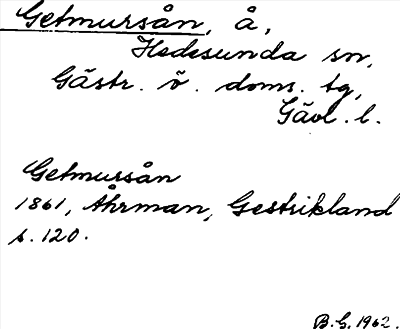 Getmursån, å,
Hedesunda sn,
Gästr. ö. doms. tg,
Gävl. l.
Getmursån
1861, Åhrman, Gestrikland
s. 120.
B.G. 1962.